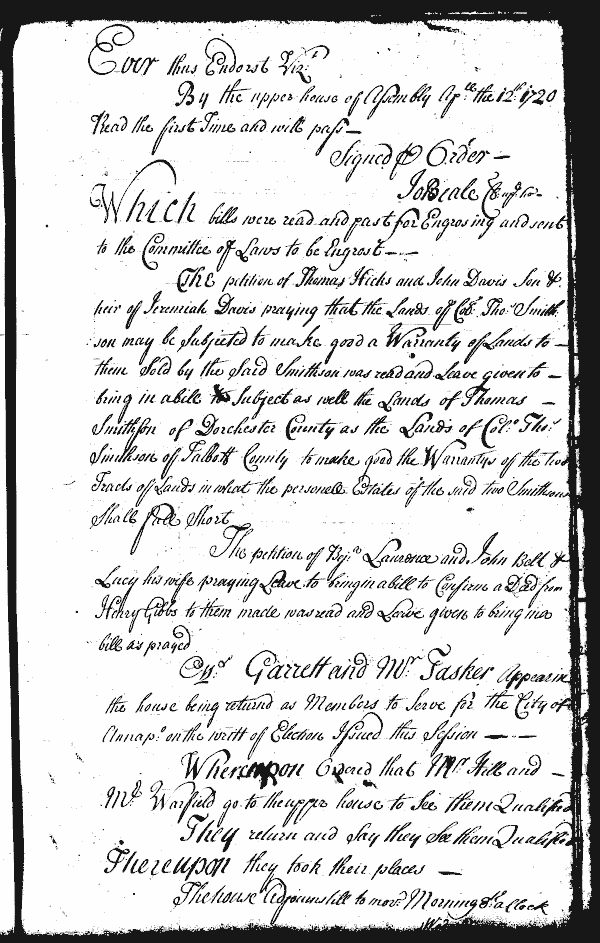 Ever thus Endorst Vizt
By the upper house of Assembly Apll the 12th 1720
Read the first Time and will pass —
Signed p Order —
Jo Beale
Which bills were read and past for Engrosing and sent
to the Committee of Laws to be Engrost — —
The petition of Thomas Hicks and John Davis Son &
heir of Jeremiah Davis praying that the Lands of Col. Tho: Smith
son may be Subjected to make good a Warranty of Lands to —
them Sold by the Said Smithson was read and Leave given to —
bring in a bill to Subject as well the Lands of Thomas —
Smithson of Dorchester County as the Lands of Col.o Tho.s
Smithson of Talbott County to make good the Warrantys of the two
Tracts of Lands in what the personell Estates of the said two Smithsons
Shall fall Short
The petition of Benj.a Laurence and John Bell &
Lucy his wife praying Leave to bring in a bill to Confirm a Deed from
Henry Gibbs to them made was read and Leave given to bring in a
bill as prayed
Garrett and Mr Tasker Appearin
the house being returnd as Members to Serve for the City of
Annap.o on the writt of Election Issued this Session — —
Whereupon Ordered that Mr Hill and —
Mr Warfield go to the upper house to See them Qualified
They return and Say they See them Qualified
Thereupon they took their places —
The house Adjourns till to mor. Morning 8 a Clock